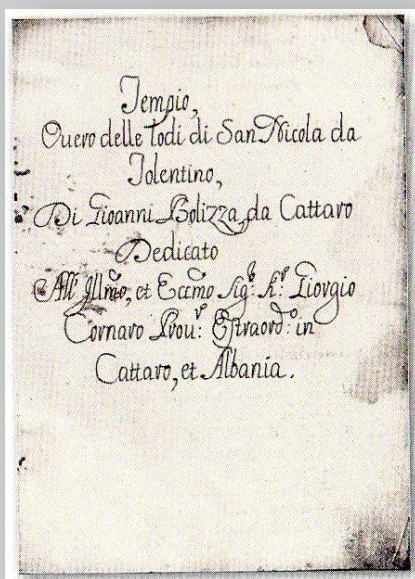 Tempio,
Ouero delle Lodi di San Nicola da
Tolentino,
Di Gioanni Bolizza, da Cattaro
Dedicato
All' Illmo, et Eccmo Sigr Kr Giorgio
Cornaro Prour: Estraordo: in
Cattaro, et Albania.